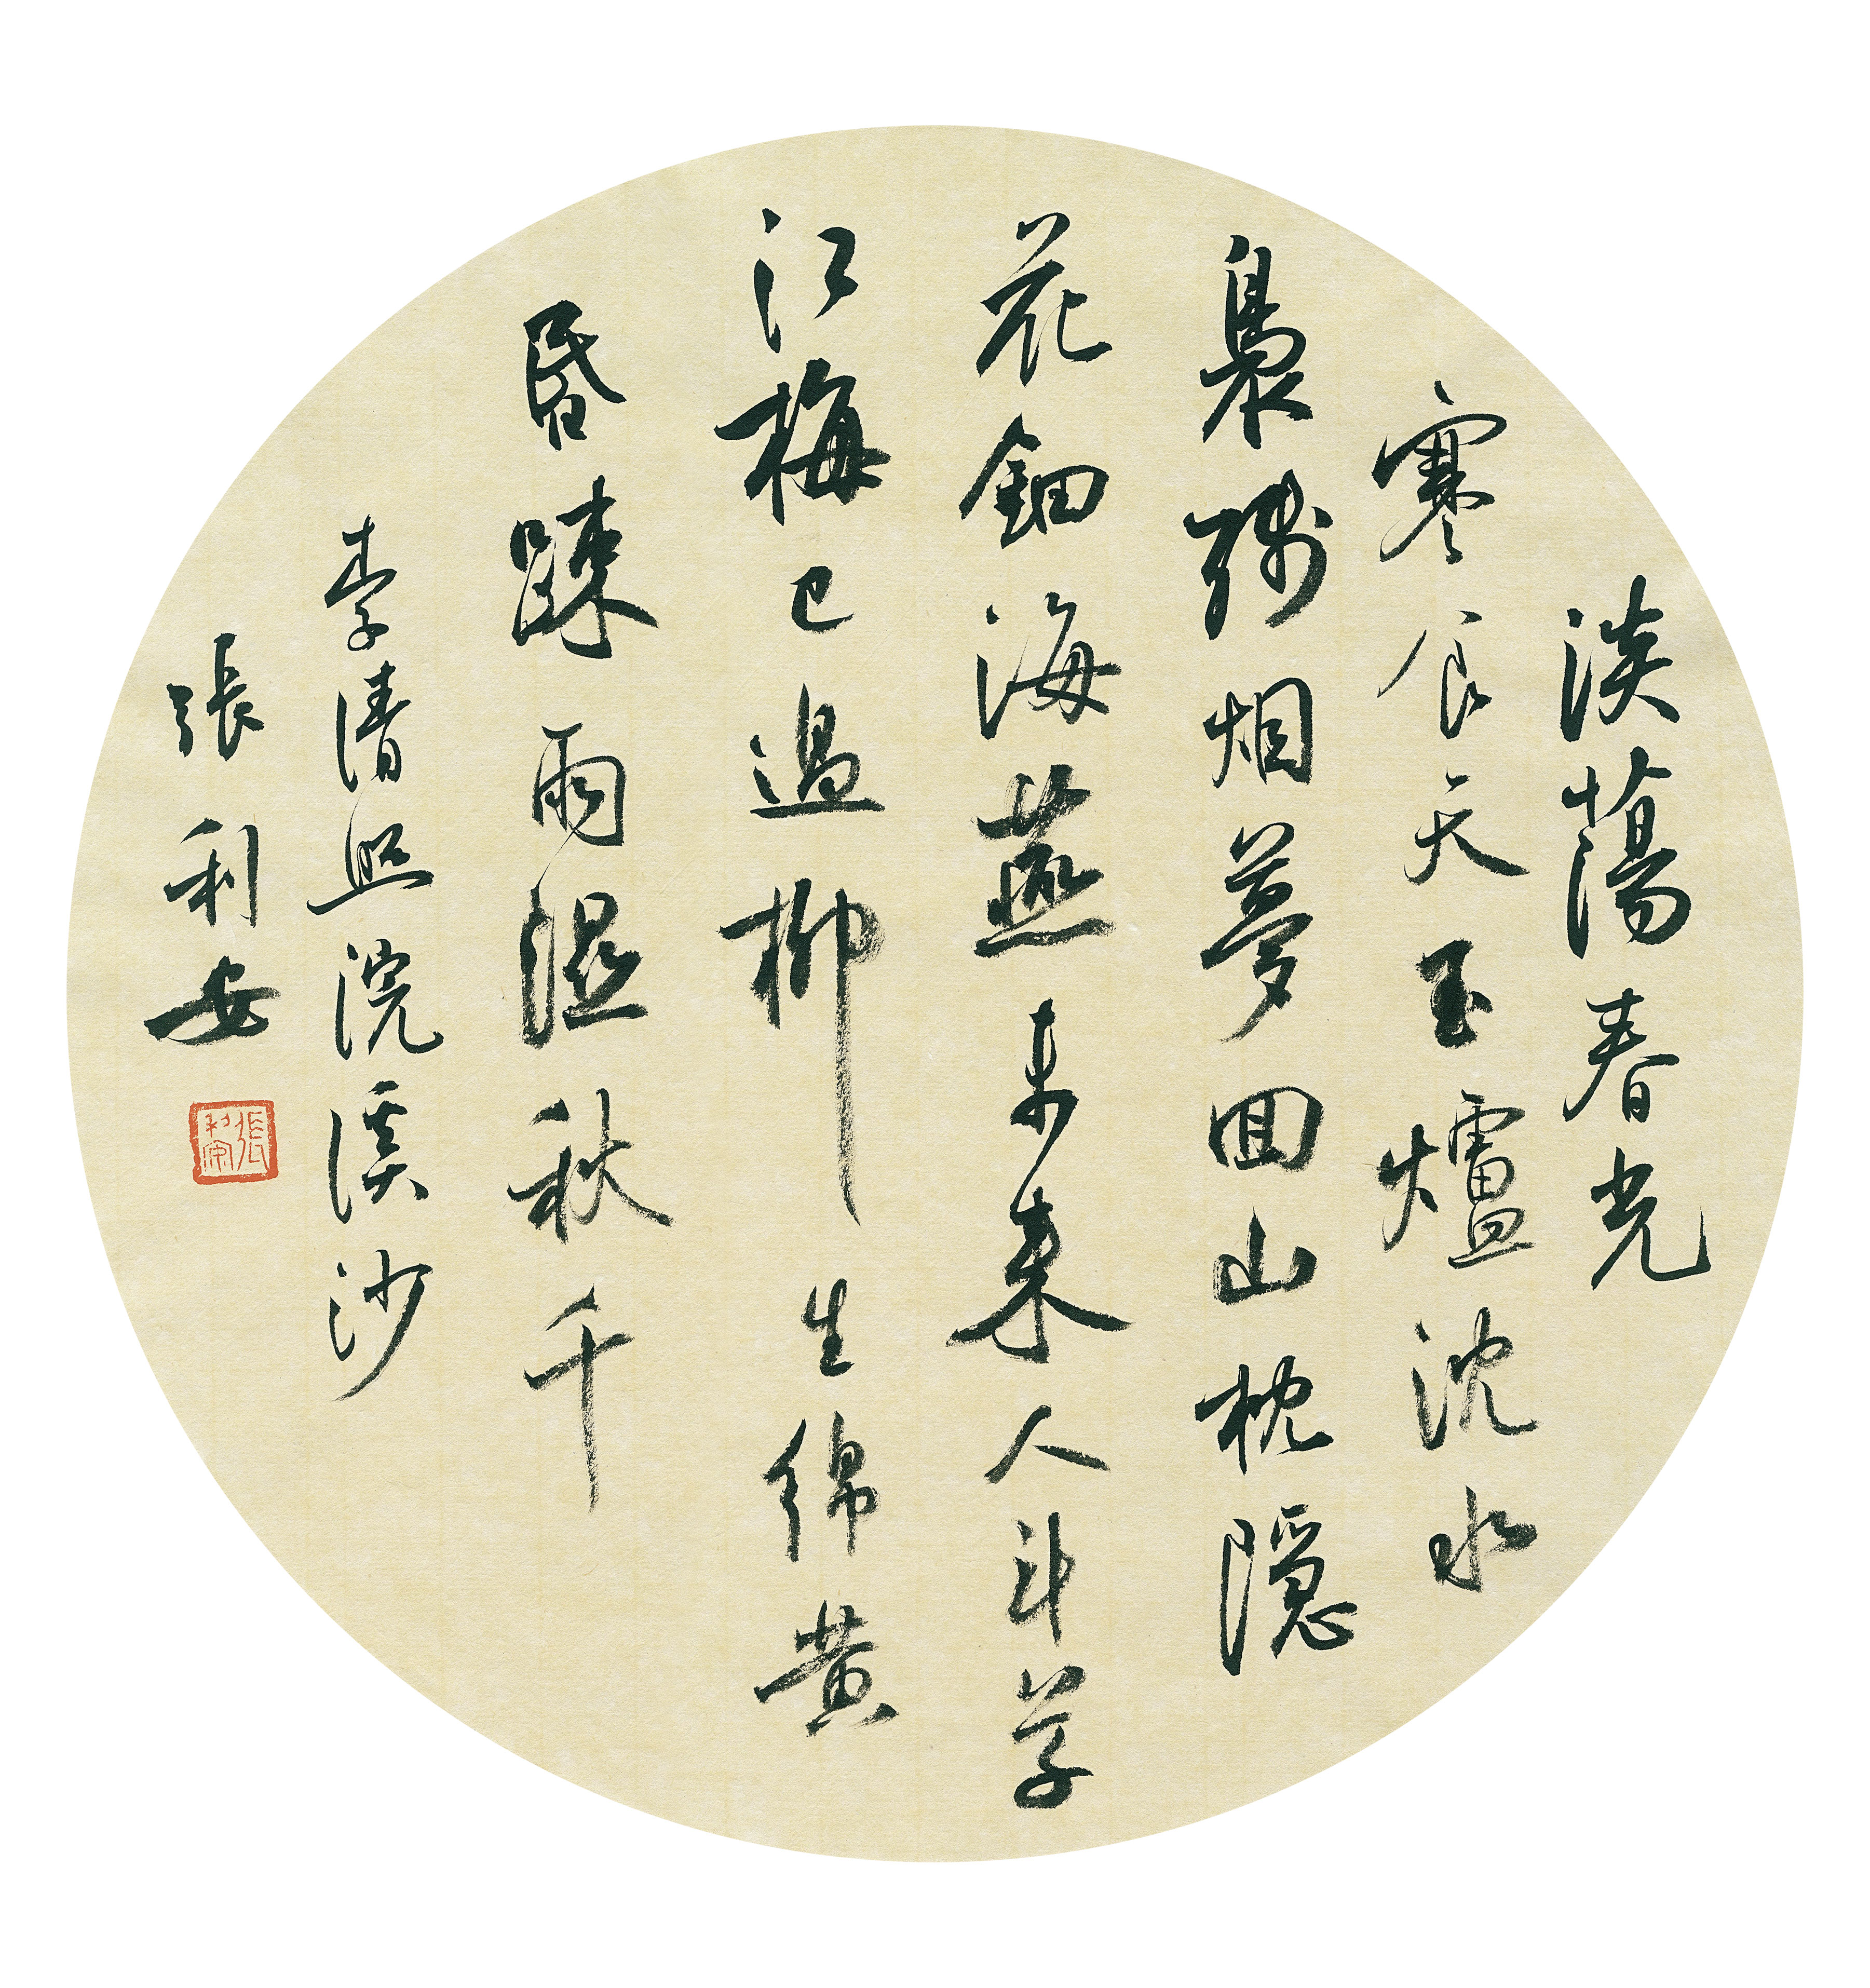 淡蕩春光
寒食天玉爐沈水
裊殘烟夢回山枕隱
花鈿海燕未来人斗草
江梅已過柳生綿黄
昏疎雨濕秋千
李清照浣溪沙
張利安
張利安